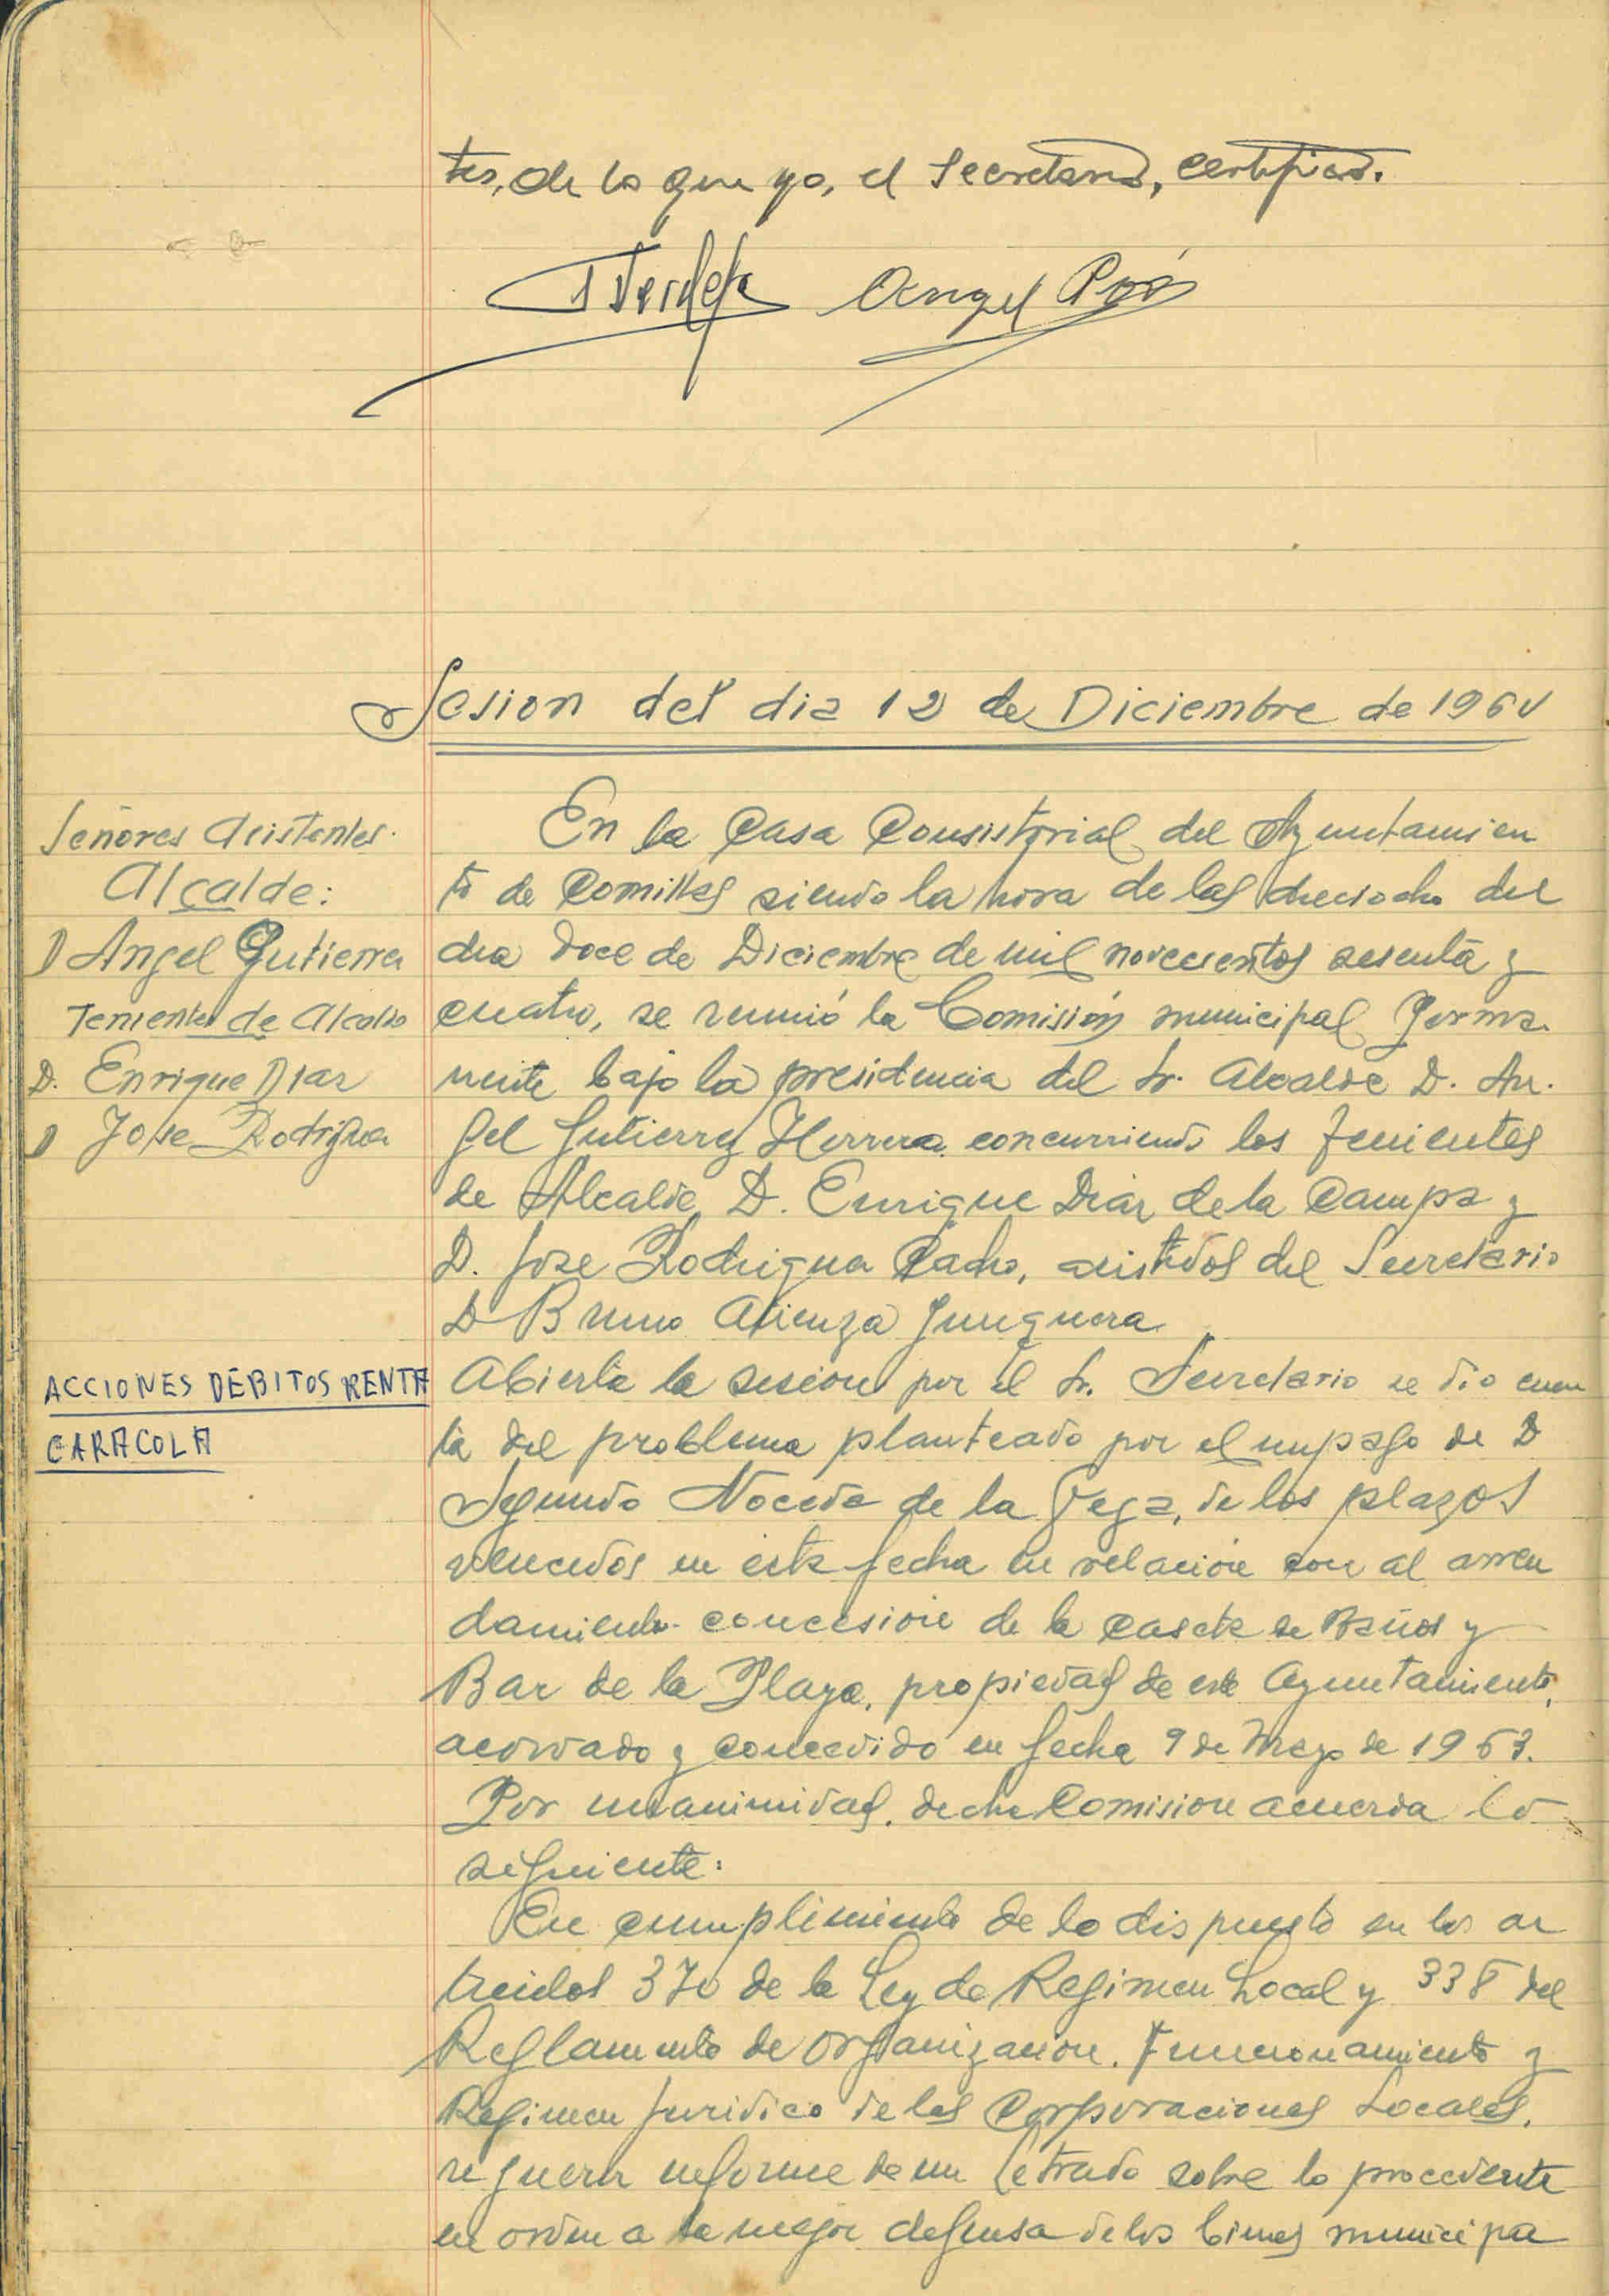 tes, de lo que yo, el Secretario, certifico.
Angel
Sesion del dia 12 de Diciembre de 1964
Señores Asistentes.
Alcalde:
D Angel Gutierrez
Tenientes de Alcalde
D. Enrique Diaz
D Jose Rodriguez
En la Casa Consistorial del Ayuntamien
to de Comillas siendo la hora de las dieciocho del
dia doce de Diciembre de mil novecientos sesenta y
cuatro, se reunió la Comisión municipal Perma
nente bajo la presidencia del Sr. Alcalde D. An.
gel Gutierrez Herrera concurriendo los Tenientes
de Alcalde D. Enrique Diaz de la Campa y
D. Jose Rodriguez Cacho, asistidos del Secretario
D Bruno Atienza Junquera
ACCIONES DEBITOS RENTA
CARACOLA
Abierta la sesion por el Sr. Secretario se dio cuen
ta del problema planteado por el impago de D
Segundo Noceda de la Vega, de los plazos
vencidos en esta fecha en relacion con al arren
damiento concesion de la caseta de Baños y
Bar de la Playa, propiedad de este Ayuntamiento,
acordado y concedido en fecha 9 de Mayo de 1963.
Por unanimidad, dicha Comision acuerda lo
siguiente:
En cumplimiento de lo dispuesto en los ar
ticulos 370 de la Ley de Regimen Local y 338 del
Reglamento de Organizacion, Funcionamiento y
Regimen Juridico de las Corporaciones Locales,
requerir informe de un Letrado sobre lo procedente
en orden a la mejor defensa de los bienes municipa